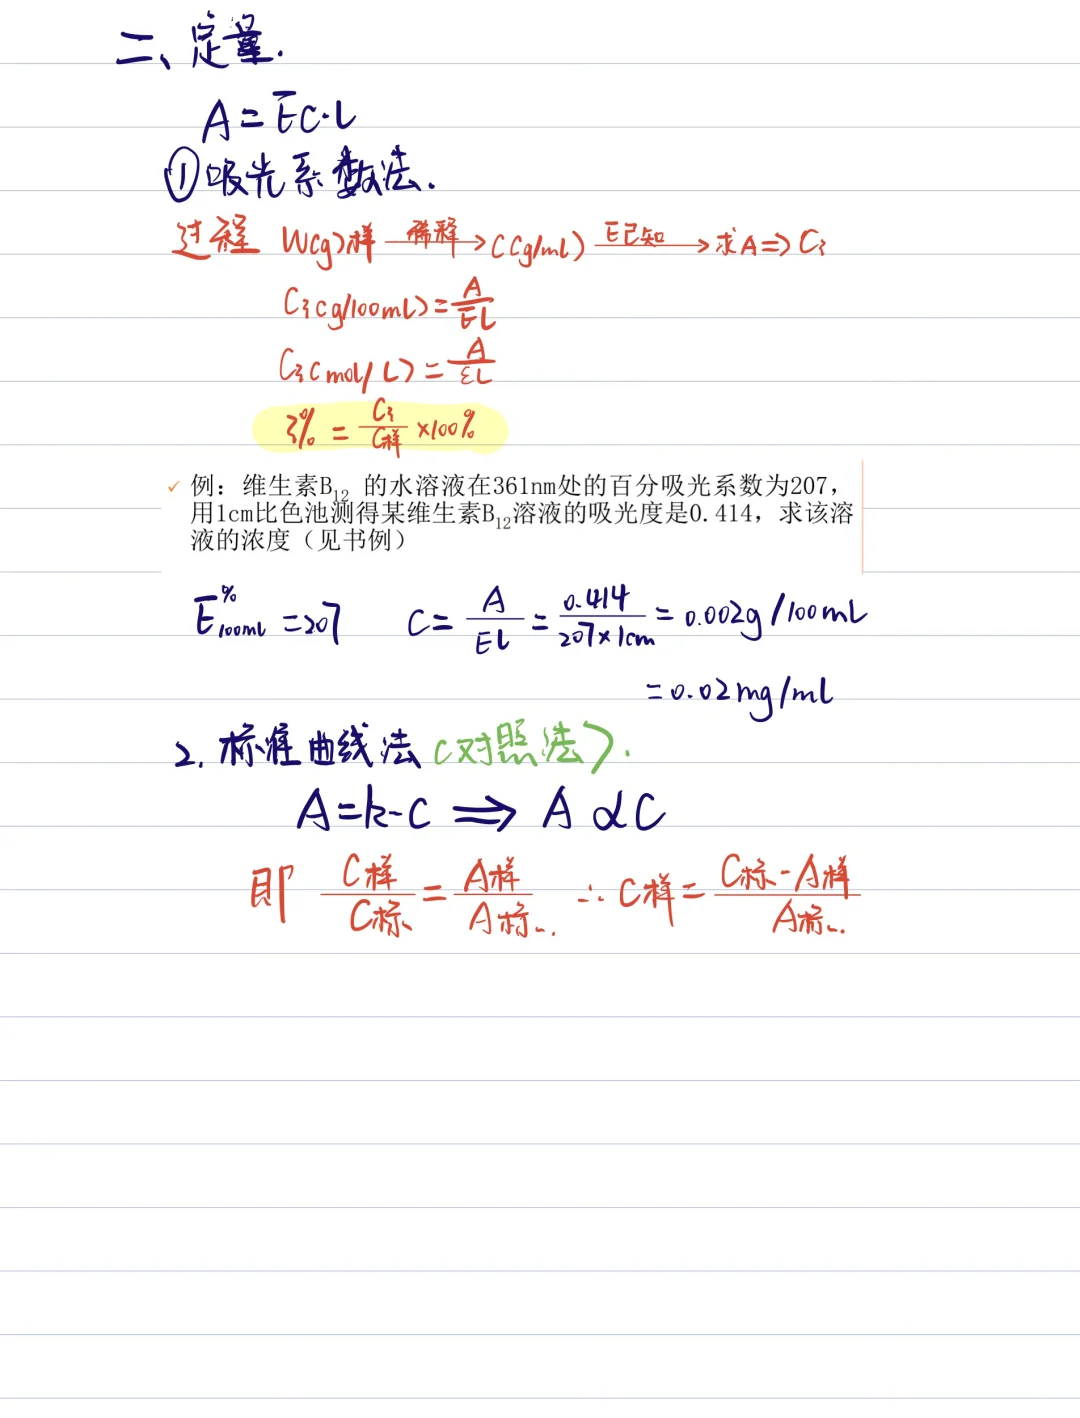 二、定量.
A=EC·L
①吸光系数法.
过程 W(g)样 稀释→ C(g/mL) E已知→ 求A⇒Ci
Ci(g/100mL)=A/EL
Ci(mol/L)=A/εL
i%=Ci/C样×100%
✓ 例：维生素B12 的水溶液在361nm处的百分吸光系数为207，
用1cm比色池测得某维生素B12溶液的吸光度是0.414，求该溶
液的浓度（见书例）
E%100mL=207 C=A/EL=0.414/207×1cm=0.002g/100mL
=0.02mg/mL
2.标准曲线法(对照法).
A=k-C⇒A∝C
即 C样/C标=A样/A标... ∴C样=C标-A样/A标...